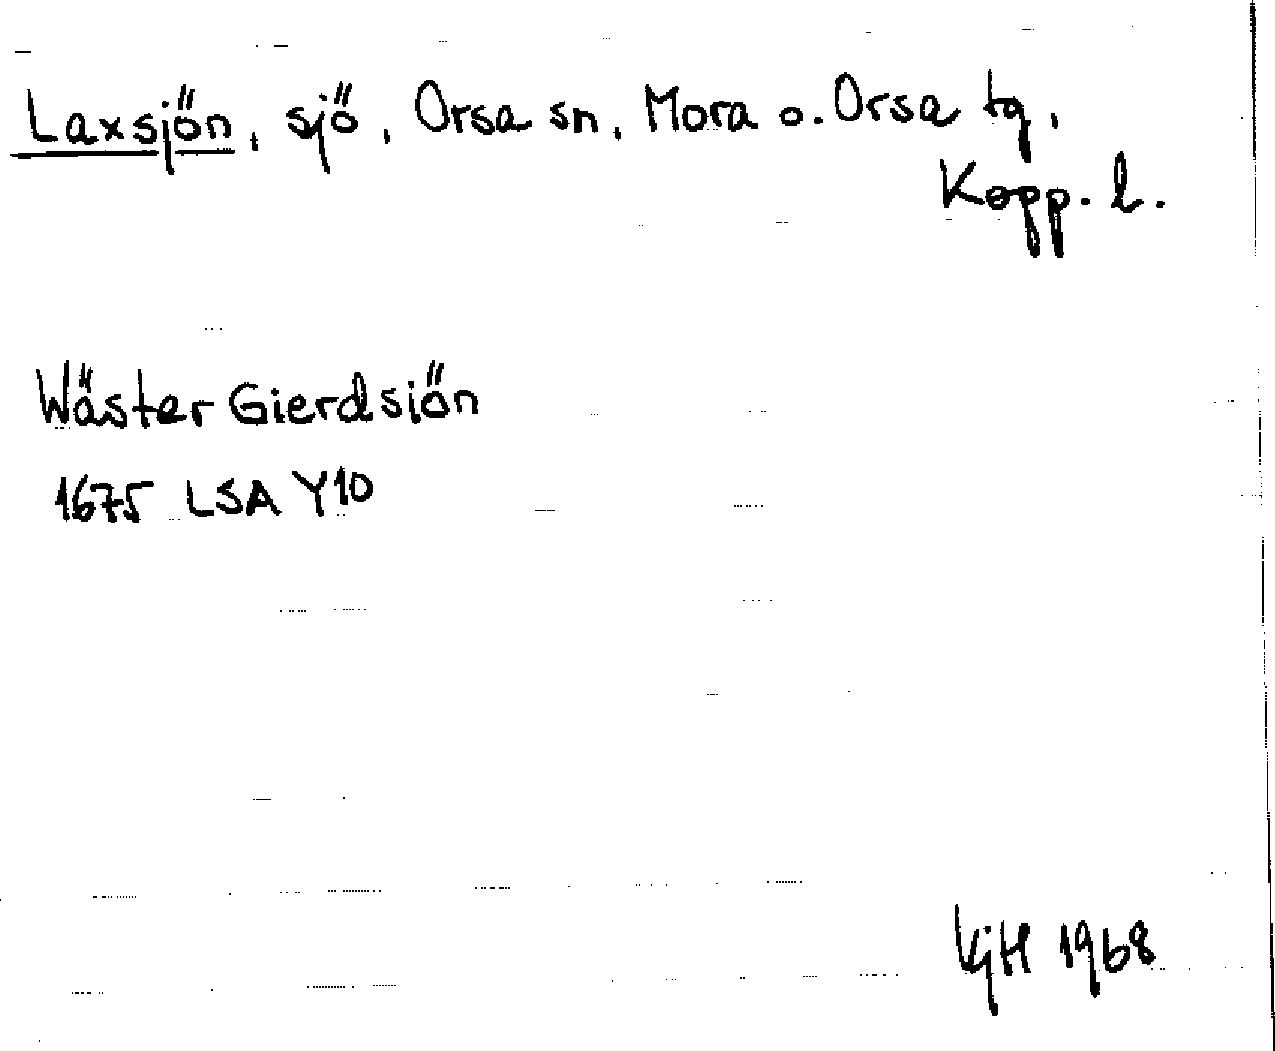 Laxsjön, sjö, Orsa sn, Mora o. Orsa tg,
Kopp. l.
Wäster Gierdsiön
1675 LSA Y10
KjH 1968